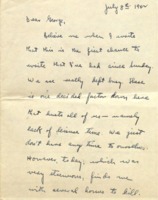 July 8th 1942
Dear George,
Believe me when I write
that this is the first chance to
write that I've had since Sunday.
We are really kept busy. There
is one decided factor down here
that beats all of us — namely
lack of leisure time. We just
don't have any time to ourselves.
However, today, which was
very strenuous, finds me
with several hours to kill.